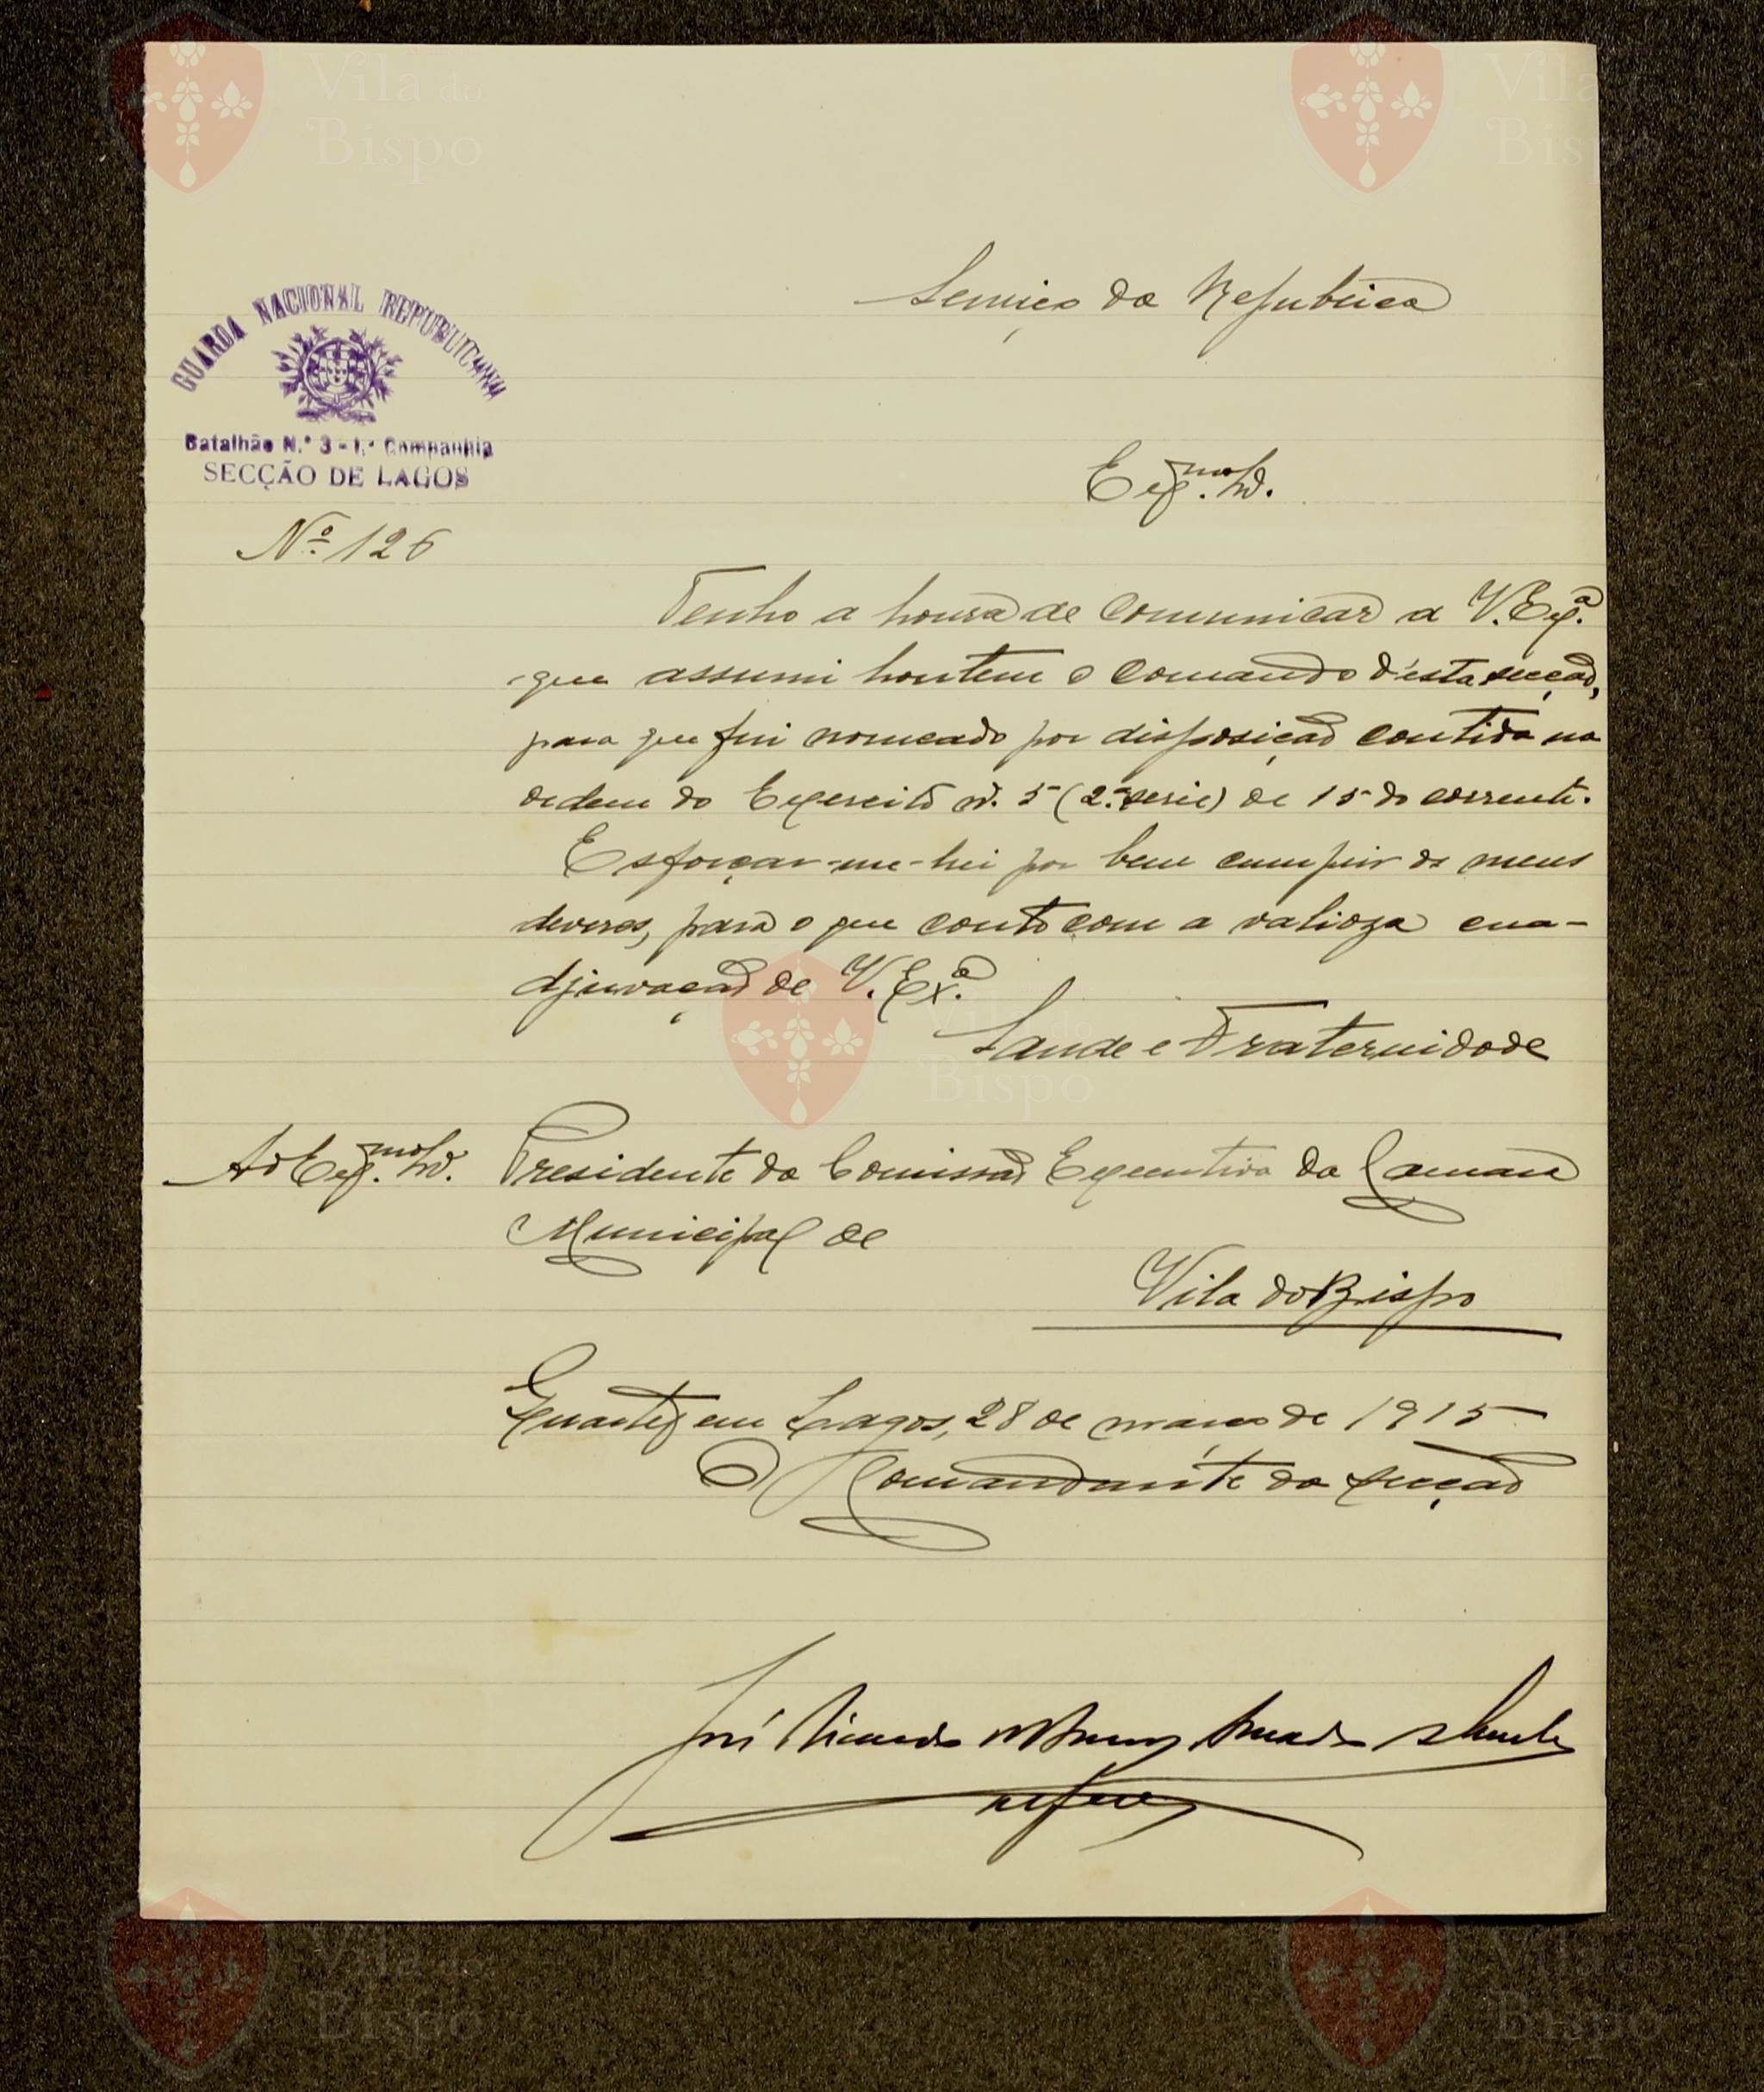 Serviço da Republica
GUARDA NACIONAL REPUBLICANA
Batalhão N.º 3 - 1.ª Companhia
SECÇÃO DE LAGOS
Nº 126
Exmo Sr.
Tenho a honra de comunicar a V. Exª.
que assumi hontem o comando d'esta secção,
para que fui nomeado por disposição contida na
ordem do Exercito nº. 5 (2.ª serie) de 15 do corrente.
Esforçar-me-hei por bem cumprir os meus
deveres, para o que conto com a valioza cua-
djuvação de V. Exª.
Saude e Fraternidade
Ao Exmo Sr. Presidente da Comissão Executiva da Camara
Municipal de
Vila do Bispo
Quartel em Lagos, 28 de março de 1915
O Comandante da secção
José Ricardo
alferes
Vila do
Bispo
Vila
Bispo
Vila do
Bispo
Vila do
Bispo
Vila do
Bispo